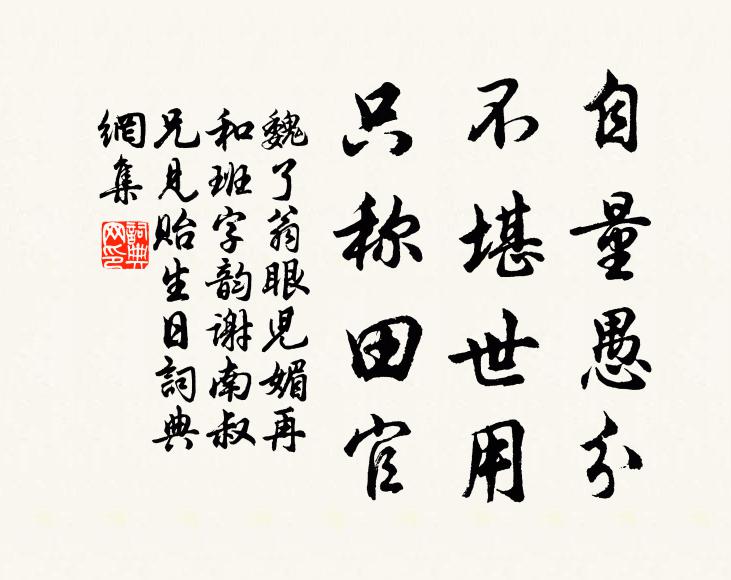 自量愚分
不堪世用
只称田官
魏了翁眼児媚再
和班字韵谢南叔
兄見贻生日詞典
網集
詞典网印